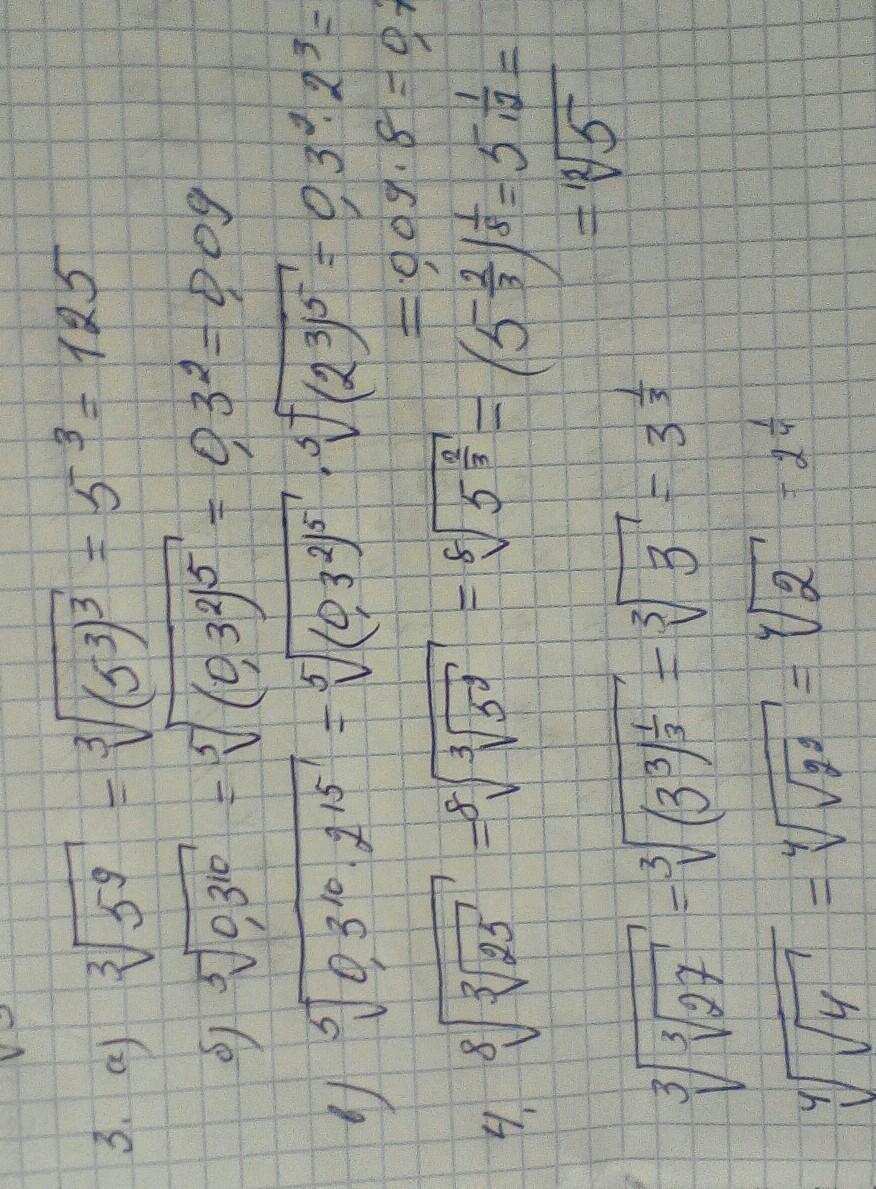 3. а) ∛(5⁹) = ∛((5³)³) = 5³ = 125
б) ⁵√(0,3¹⁰) = ⁵√((0,3²)⁵) = 0,3² = 0,09
в) ⁵√(0,3¹⁰ · 2¹⁵) = ⁵√((0,3²)⁵) · ⁵√((2³)⁵) = 0,3² · 2³ =
= 0,09 · 8 = 0,7
4. ⁸√(∛25) = ⁸√(∛(5²)) = ⁸√(5^(2/3)) = (5^(2/3))^(1/8) = 5^(1/12) =
= ¹²√5
∛(∛27) = ∛((3³)^(1/3)) = ∛3 = 3^(1/3)
⁴√(√4) = ⁴√(√(2²)) = ⁴√2 = 2^(1/4)